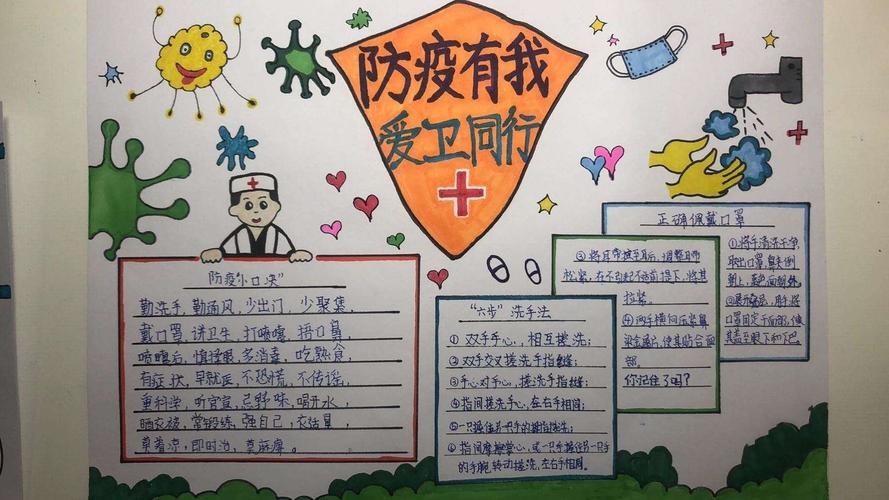 防疫有我
爱卫同行
防疫“小口决”
勤洗手，勤通风，少出门，少聚集，
戴口罩，讲卫生，打喷嚏，捂口鼻，
喷嚏后，慎揉眼，多消毒，吃熟食，
有症状，早就医，不恐慌，不传谣，
重科学，听官宣，忌野味，喝开水，
晒衣被，常锻练，强自己，衣适量，
莫着凉，即时治，莫麻痹。
“六步”洗手法
① 双手手心，相互搓洗；
② 双手交叉搓洗手指缝；
③ 手心对手心，搓洗手指缝；
④ 指间搓洗手心，左右手相同；
⑤ 一只手握住另一只手的拇指搓洗；
⑥ 指间摩擦掌心，或一只手握住另一只手
的手腕，转动搓洗，左右手相同。
正确佩戴口罩
①将手清洗干净，
取出口罩，鼻夹侧
朝上，
口罩固定于面部，使
其盖至眼下和下巴
③将耳带挂至耳后，调整耳带
松紧，在不引起不适前提下，将其
拉紧。
④两手横向压紧鼻
梁金属片，使其贴合面
部。
你记住了吗？